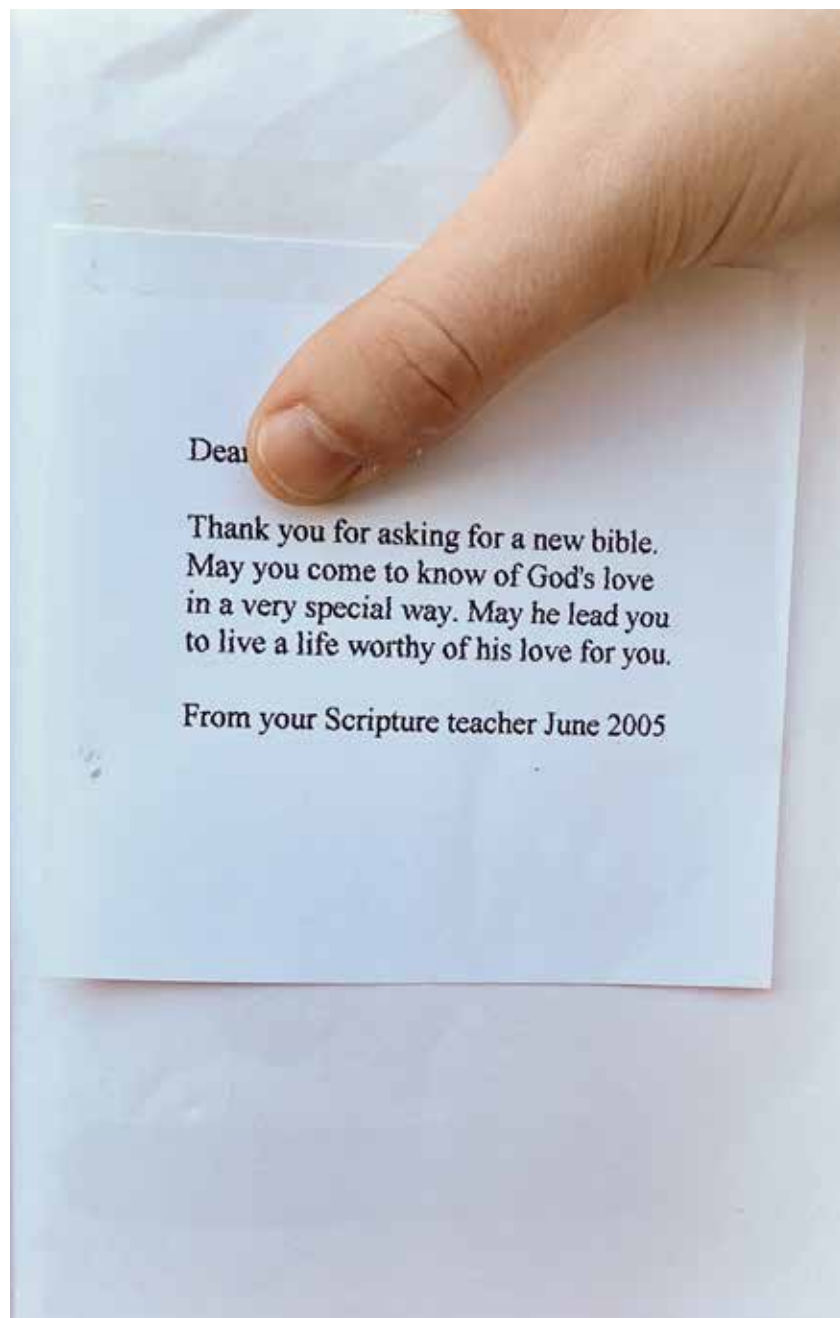 Dear
Thank you for asking for a new bible.
May you come to know of God's love
in a very special way. May he lead you
to live a life worthy of his love for you.
From your Scripture teacher June 2005